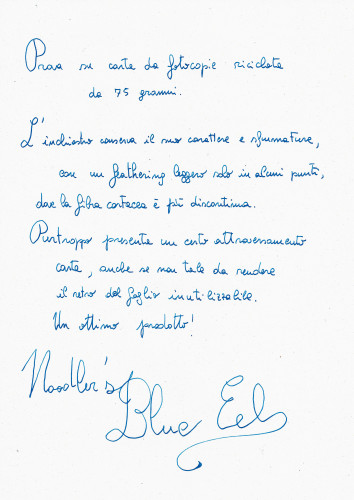 Prova su carta da fotocopie riciclata
da 75 grammi.
L'inchiostro conserva il suo carattere e sfumature,
con un feathering leggero solo in alcuni punti,
dove la fibra cartacea è più discontinua.
Purtroppo presenta un certo attraversamento
carta, anche se non tale da rendere
il retro del foglio inutilizzabile.
Un ottimo prodotto!
Noodler's
Blue Eel